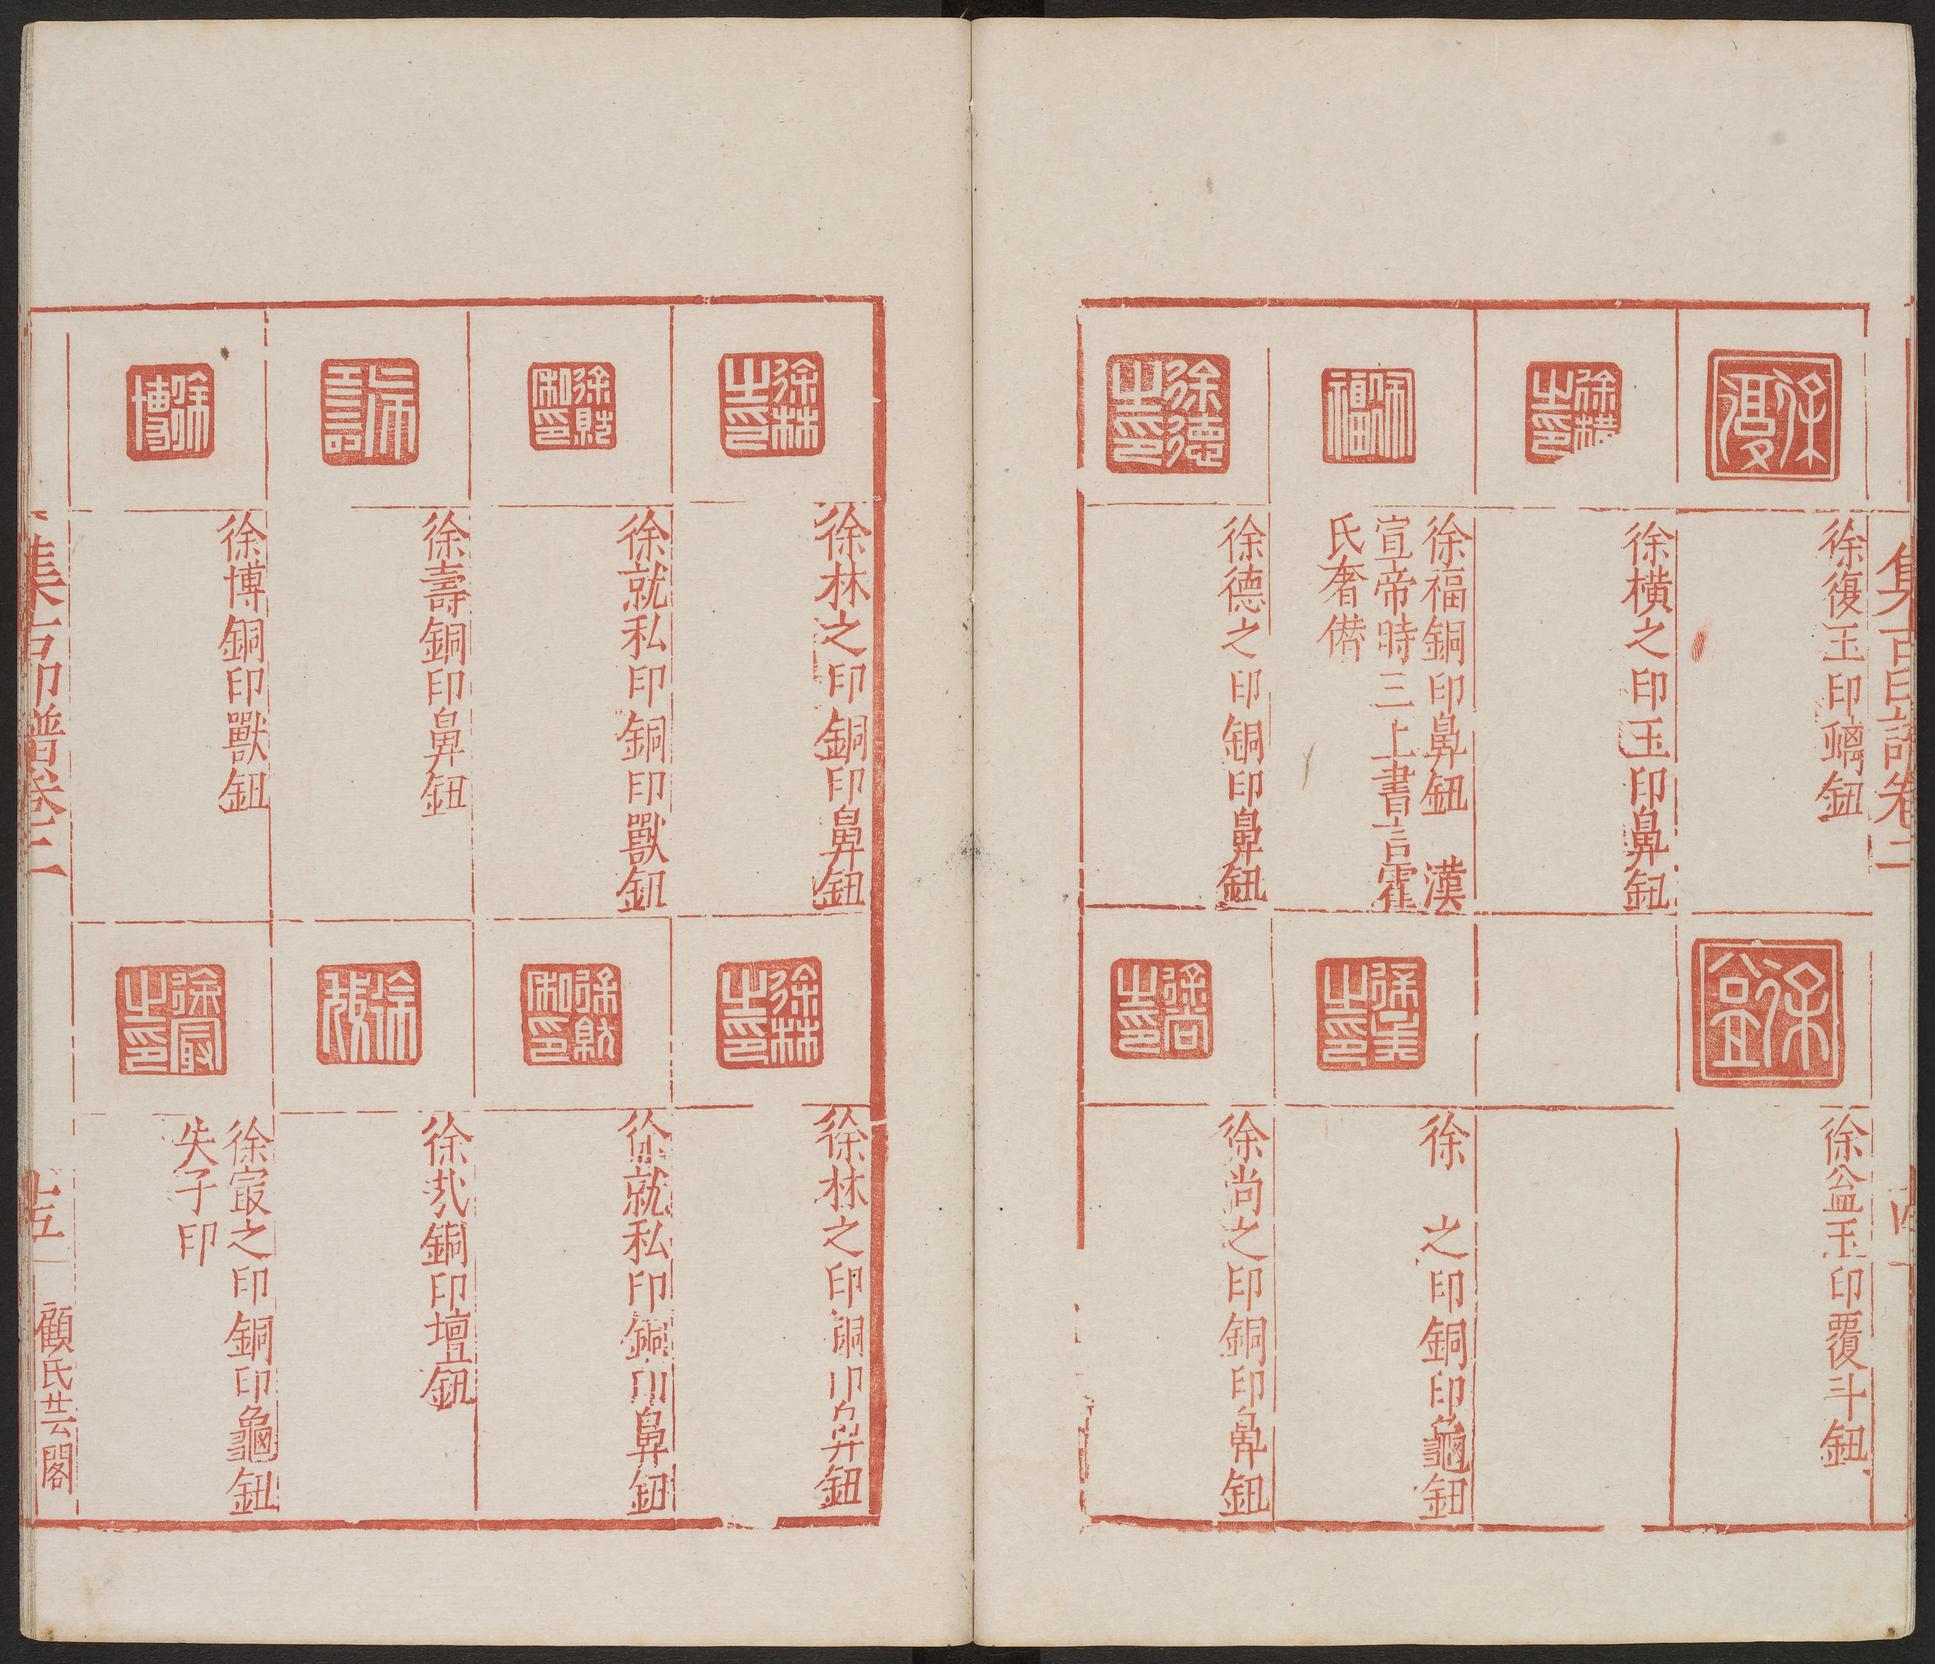 集古印譜卷二
徐復玉印螭鈕
徐橫之印玉印鼻鈕
徐福銅印鼻鈕　漢
宣帝時三上書言霍
氏奢僭
徐德之印銅印鼻鈕
徐益玉印覆斗鈕
徐　之印銅印龜鈕
徐尚之印銅印鼻鈕
徐林之印銅印鼻鈕
徐就私印銅印獸鈕
徐壽銅印鼻鈕
徐博銅印獸鈕
徐林之印銅印鼻鈕
徐就私印銅印鼻鈕
徐 銅印壇鈕
徐冣之印銅印龜鈕
失子印
集古印譜卷三
十五
顧氏芸閣